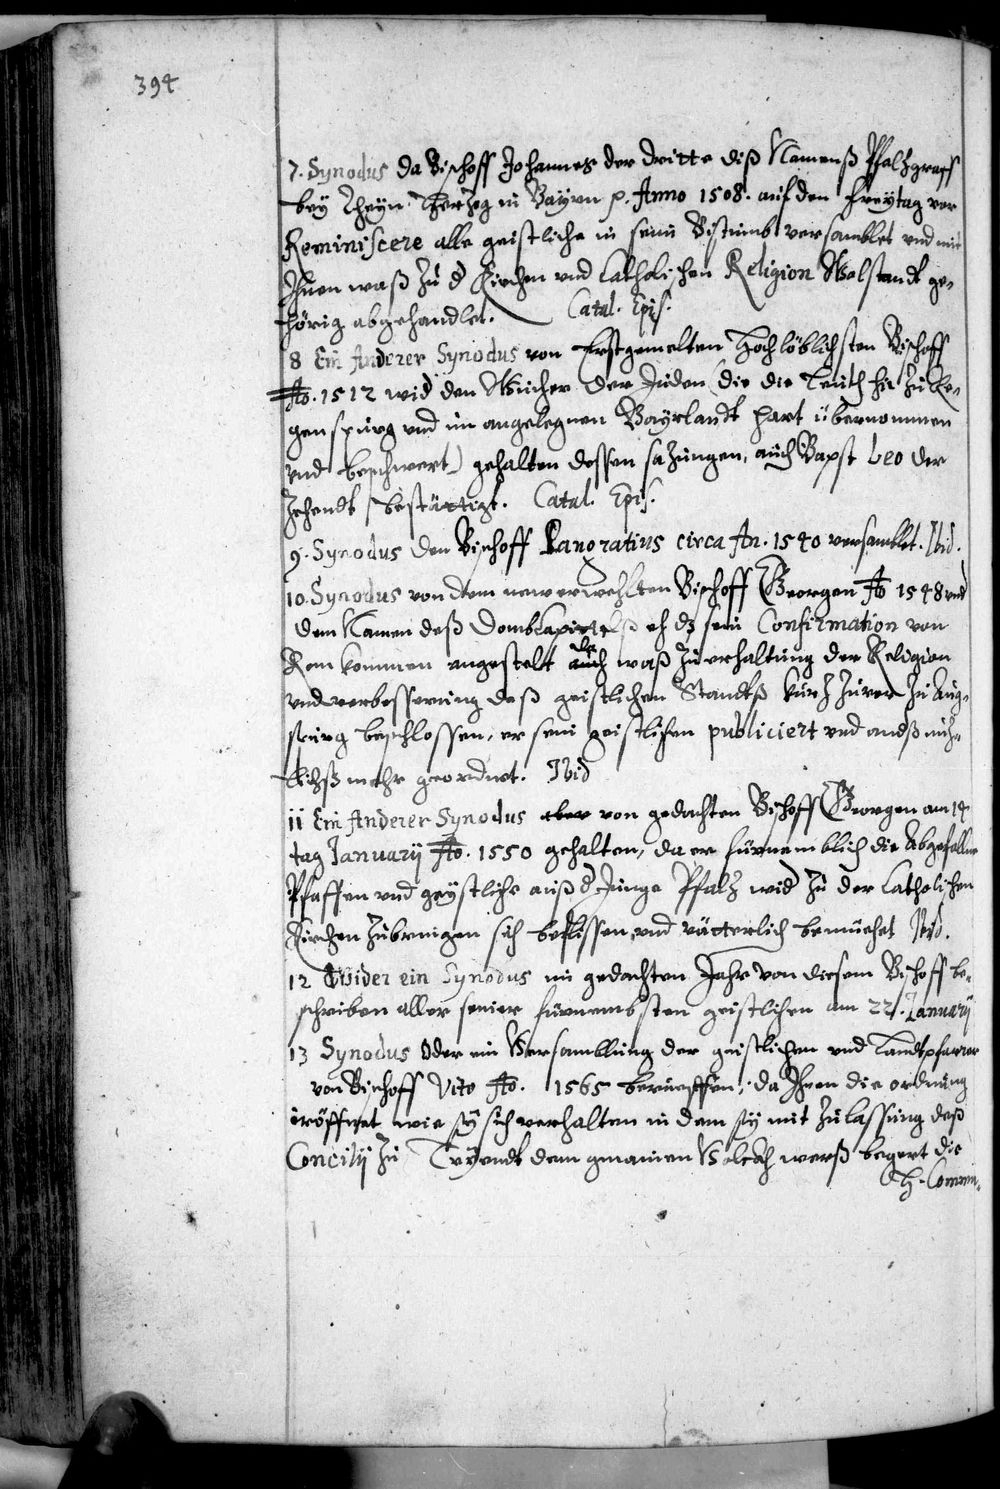 394
7. Synodus da Bischoff Johannes der dritte diß Namenß Pfalzgraff
bey Rheyn Herzog in Bayrn p. Anno 1508. auf den freytag vor
Reminiscere alle geistliche in sein Bistumb versamblet vnd mit
Ihnen waß zu d Kirchen vnd Catholischen Religion Wolstandt ge-
hörig abgehandlet. Catal. Epis.
8 Ein Anderer Synodus von Erstgemelten Hochlöblichsten Bischoff
Ao. 1512 wid den Wucher der Juden (die die Leuth hie zu Re-
genspurg vnd im angelegnen Bayrlandt hart übernommen
vnd beschwert) gehalten dessen sazungen, auch Bapst Leo der
Zehendt bestättigt. Catal. Epis.
9. Synodus den Bischoff Pancratius circa An. 1540 versamblet. Ibid.
10. Synodus von dem newerwehlten Bischoff Georgen Ao 1548 vnd
dem Namen deß Dombcapitelß eh dz sein Confirmation von
Rom kommen angestelt auch waß zu erhaltung der Religion
vnd verbesserung deß geistlichen Standtß kurz zuvor zu Aug-
spurg beschlossen, er sein geistlichen publiciert vnd andß nuz-
lichß mehr geordnet. Ibid
11 Ein Anderer Synodus aber von gedachten Bischoff Georgen am 14
tag January Ao. 1550 gehalten, da er fürnemblich die Abgefallne
Pfaffen vnd geystliche auß d Junge Pfalz wid zu der Catholischen
Kirchen zubringen sich beflissen vnd vätterlich bemüehet Ibid.
12 Wider ein Synodus im gedachten Jahr von diesem Bischoff be-
schriben aller seiner fürnembsten geistlichen am 22. January
13 Synodus Oder ein Versamblung der geistlichen vnd Landtpfarrer
von Bischoff Vito Ao. 1565 berueffen, da Ihnen die ordnung
eröffnet wie sy sich verhalten in dem sy mit zulassung deß
Concilij zu Tryendt dem gmainen Volckh werß begert die
H. Commu-